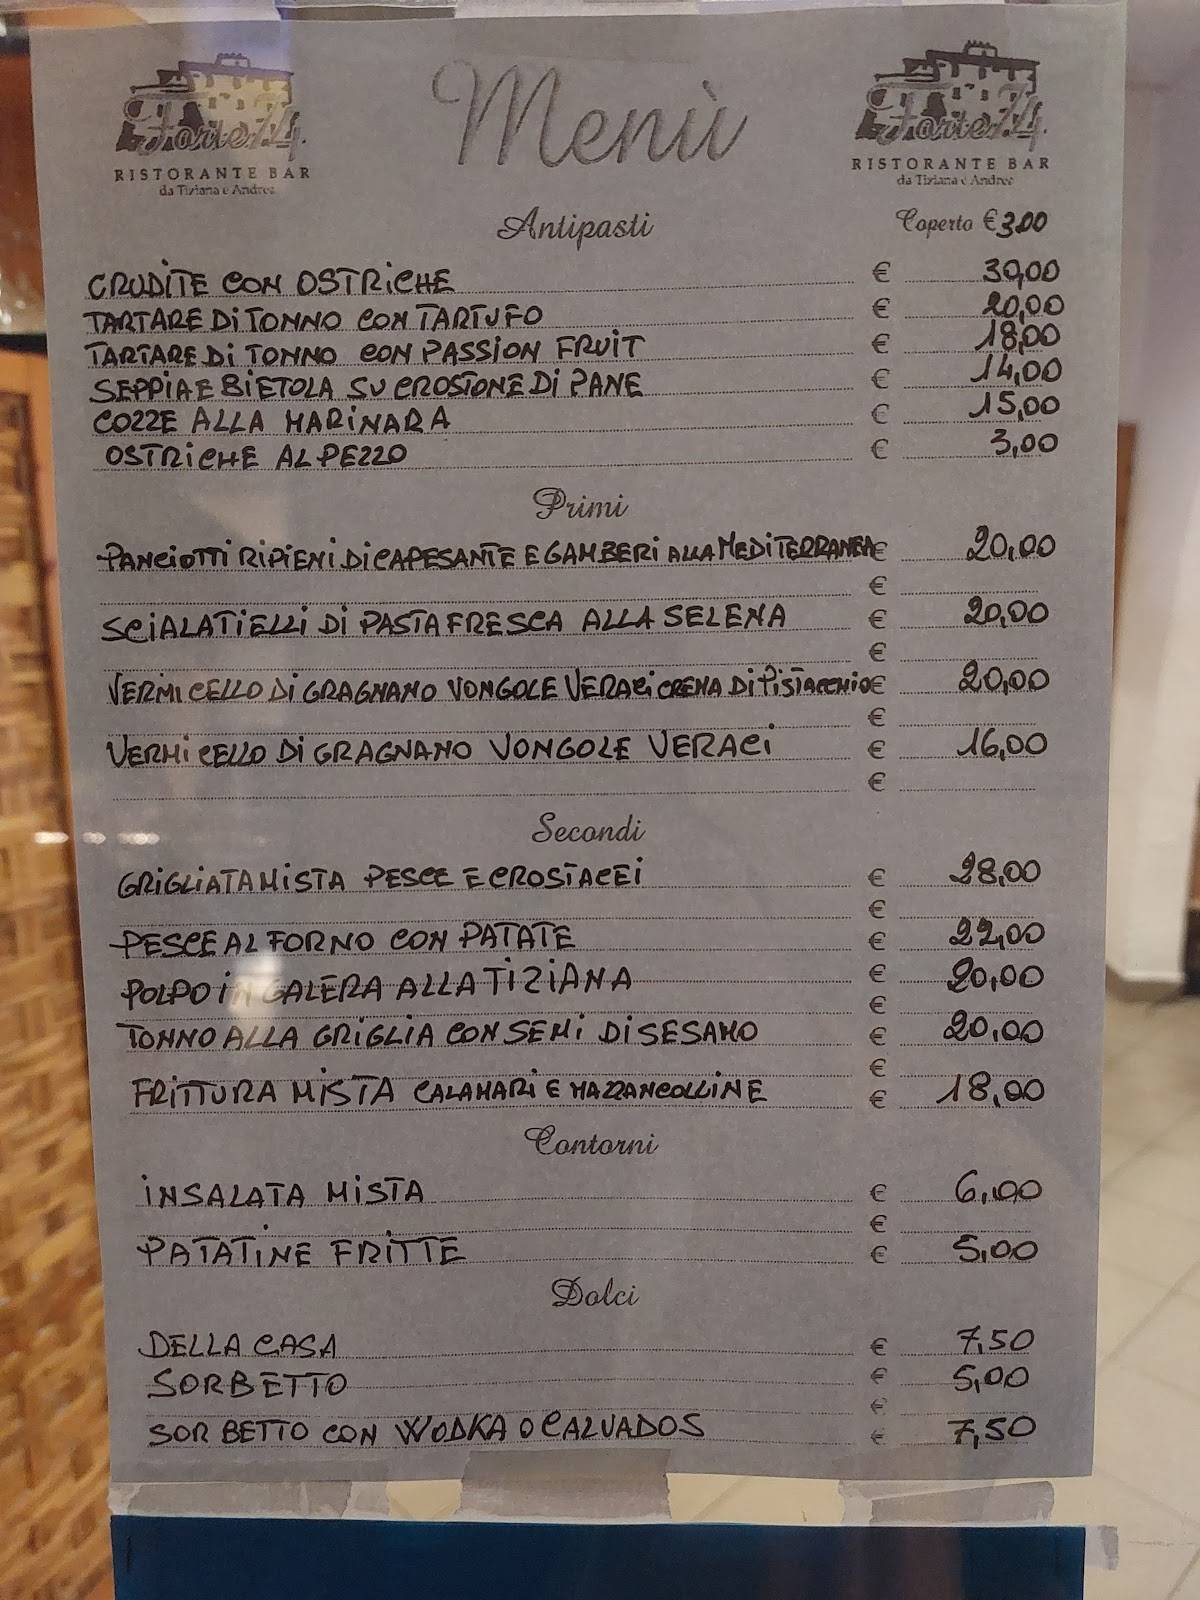 Forte 74
RISTORANTE BAR
da Tiziana e Andrea
Menù
Forte 74
RISTORANTE BAR
da Tiziana e Andrea
Antipasti
Coperto € 3,00
CRUDITE CON OSTRICHE € 30,00
TARTARE DI TONNO CON TARTUFO € 20,00
TARTARE DI TONNO CON PASSION FRUIT € 18,00
SEPPIA E BIETOLA SU CROSTONE DI PANE € 14,00
COZZE ALLA MARINARA € 15,00
OSTRICHE AL PEZZO € 3,00
Primi
PANCIOTTI RIPIENI DI CAPESANTE E GAMBERI ALLA MEDITERRANEA € 20,00
€
SCIALATIELLI DI PASTA FRESCA ALLA SELENA € 20,00
€
VERMICELLO DI GRAGNANO VONGOLE VERACI CREMA DI PISTACCHIO € 20,00
€
VERMICELLO DI GRAGNANO VONGOLE VERACI € 16,00
€
Secondi
GRIGLIATA MISTA PESCE E CROSTACEI € 28,00
€
PESCE AL FORNO CON PATATE € 22,00
POLPO IN GALERA ALLA TIZIANA € 20,00
€
TONNO ALLA GRIGLIA CON SEMI DI SESAMO € 20,00
€
FRITTURA MISTA CALAMARI E MAZZANCOLLINE € 18,00
Contorni
INSALATA MISTA € 6,00
€
PATATINE FRITTE € 5,00
Dolci
DELLA CASA € 7,50
SORBETTO € 5,00
€
SORBETTO CON WODKA O CALVADOS € 7,50